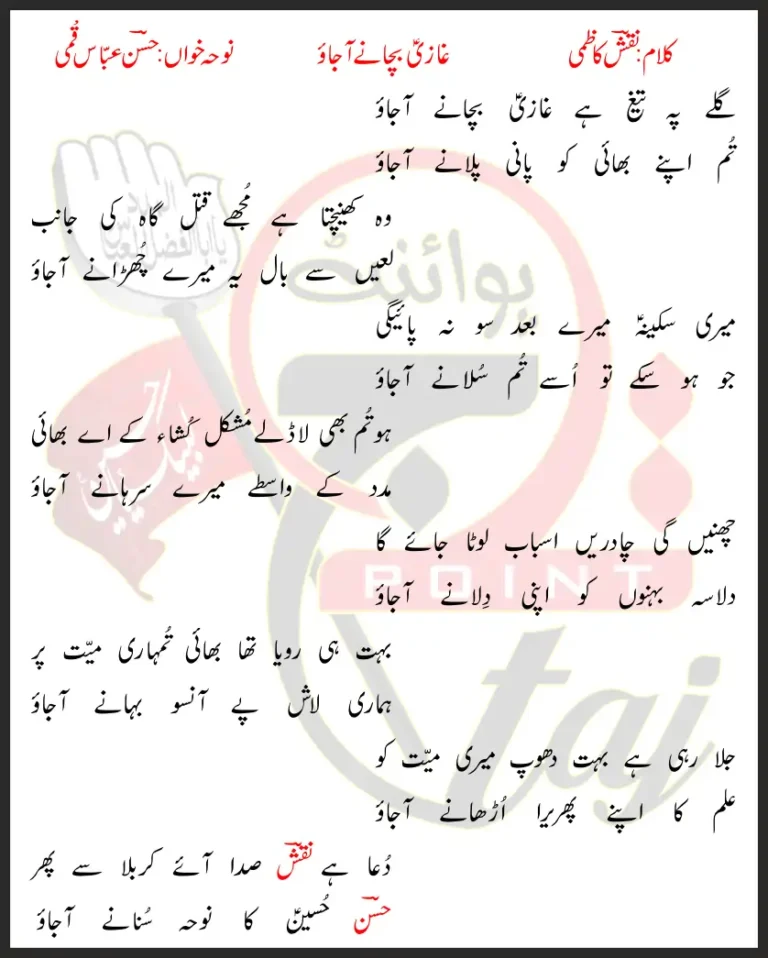 کلام: نقشؔ کاظمی غازیؑ بچانے آجاؤ نوحہ خواں: حسنؔ عبّاس قُمی
گلے پہ تیغ ہے غازیؑ بچانے آجاؤ
تُم اپنے بھائی کو پانی پلانے آجاؤ
وہ کھینچتا ہے مُجھے قتل گاہ کی جانب
لعیں سے بال یہ میرے چُھڑانے آجاؤ
میری سکینہؑ میرے بعد سو نہ پائیگی
جو ہو سکے تو اُسے تُم سُلانے آجاؤ
ہو تُم بھی لاڈلے مُشکل کُشاء کے اے بھائی
مدد کے واسطے میرے سرہانے آجاؤ
چھنیں گی چادریں اسباب لوٹا جائے گا
دلاسہ بہنوں کو اپنی دِلانے آجاؤ
بہت ہی رویا تھا بھائی تُمہاری میّت پر
ہماری لاش پے آنسو بہانے آجاؤ
جلا رہی ہے بہت دھوپ میری میّت کو
علم کا اپنے پھریرا اُڑھانے آجاؤ
دُعا ہے نقشؔ صدا آئے کربلا سے پھر
حسنؔ حُسینؑ کا نوحہ سُنانے آجاؤ
پوائنٹ
تاج
POINT
taj
لبیک یا حسین